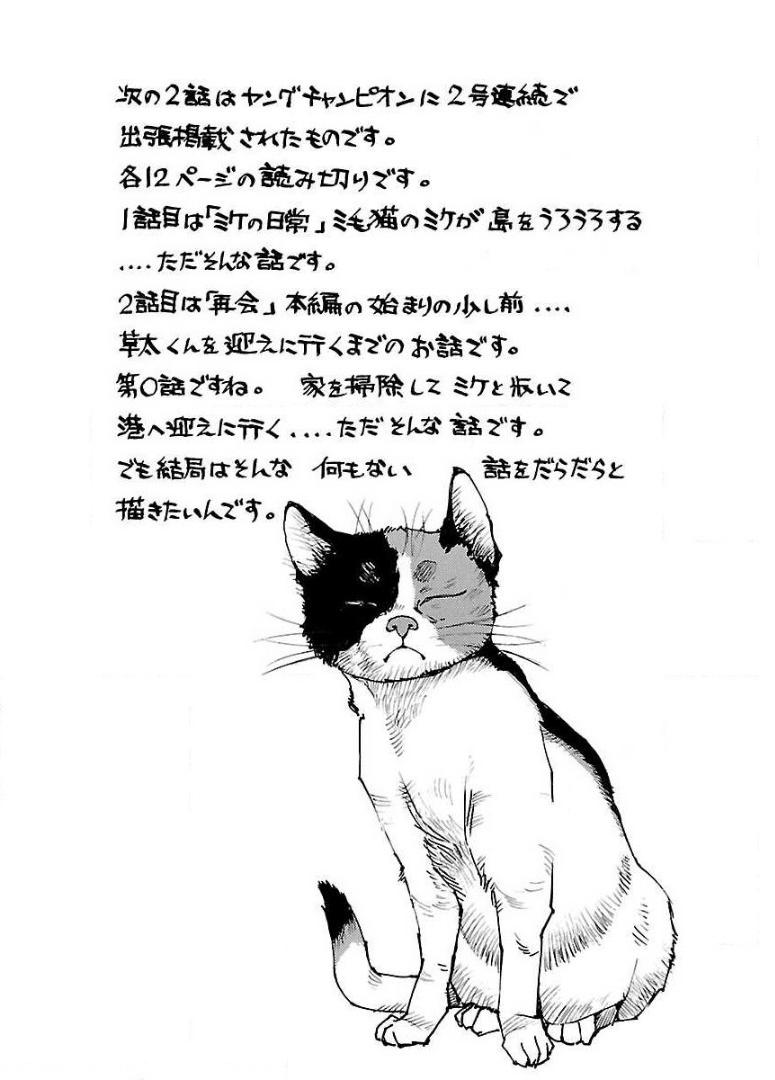 次の2話はヤングチャンピオンに2号連続で
出張掲載されたものです。
各12ページの読み切りです。
1話目は「ミケの日常」ミ毛猫のミケが島をうろうろする
....ただそんな話です。
2話目は「再会」本編の始まりの少し前....
草太くんを迎えに行くまでのお話です。
第0話ですね。 家を掃除してミケと
港へ迎えに行く....ただそんな話です。
でも結局はそんな 何もない 話をだらだらと
描きたいんです。